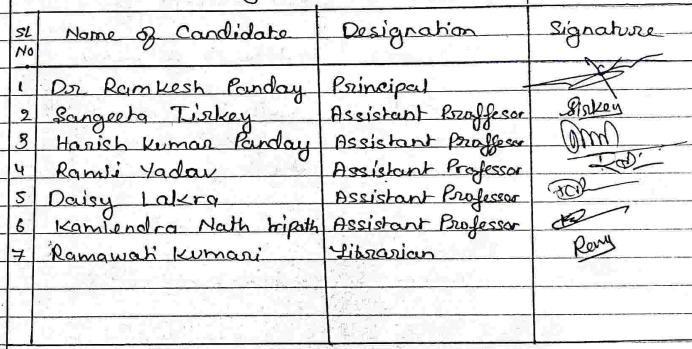 SL NO Name of Candidate Designation Signature
1 Dr Ramkesh Panday Principal
2 Sangeeta Tirkey Assistant Proffesor Sirkey
3 Harish Kumar Panday Assistant Proffesor
4 Ramji Yadav Assistant Professor
5 Daisy Lakra Assistant Professor
6 Kamlendra Nath tripath Assistant Professor
7 Ramawati Kumari Librarian Remy